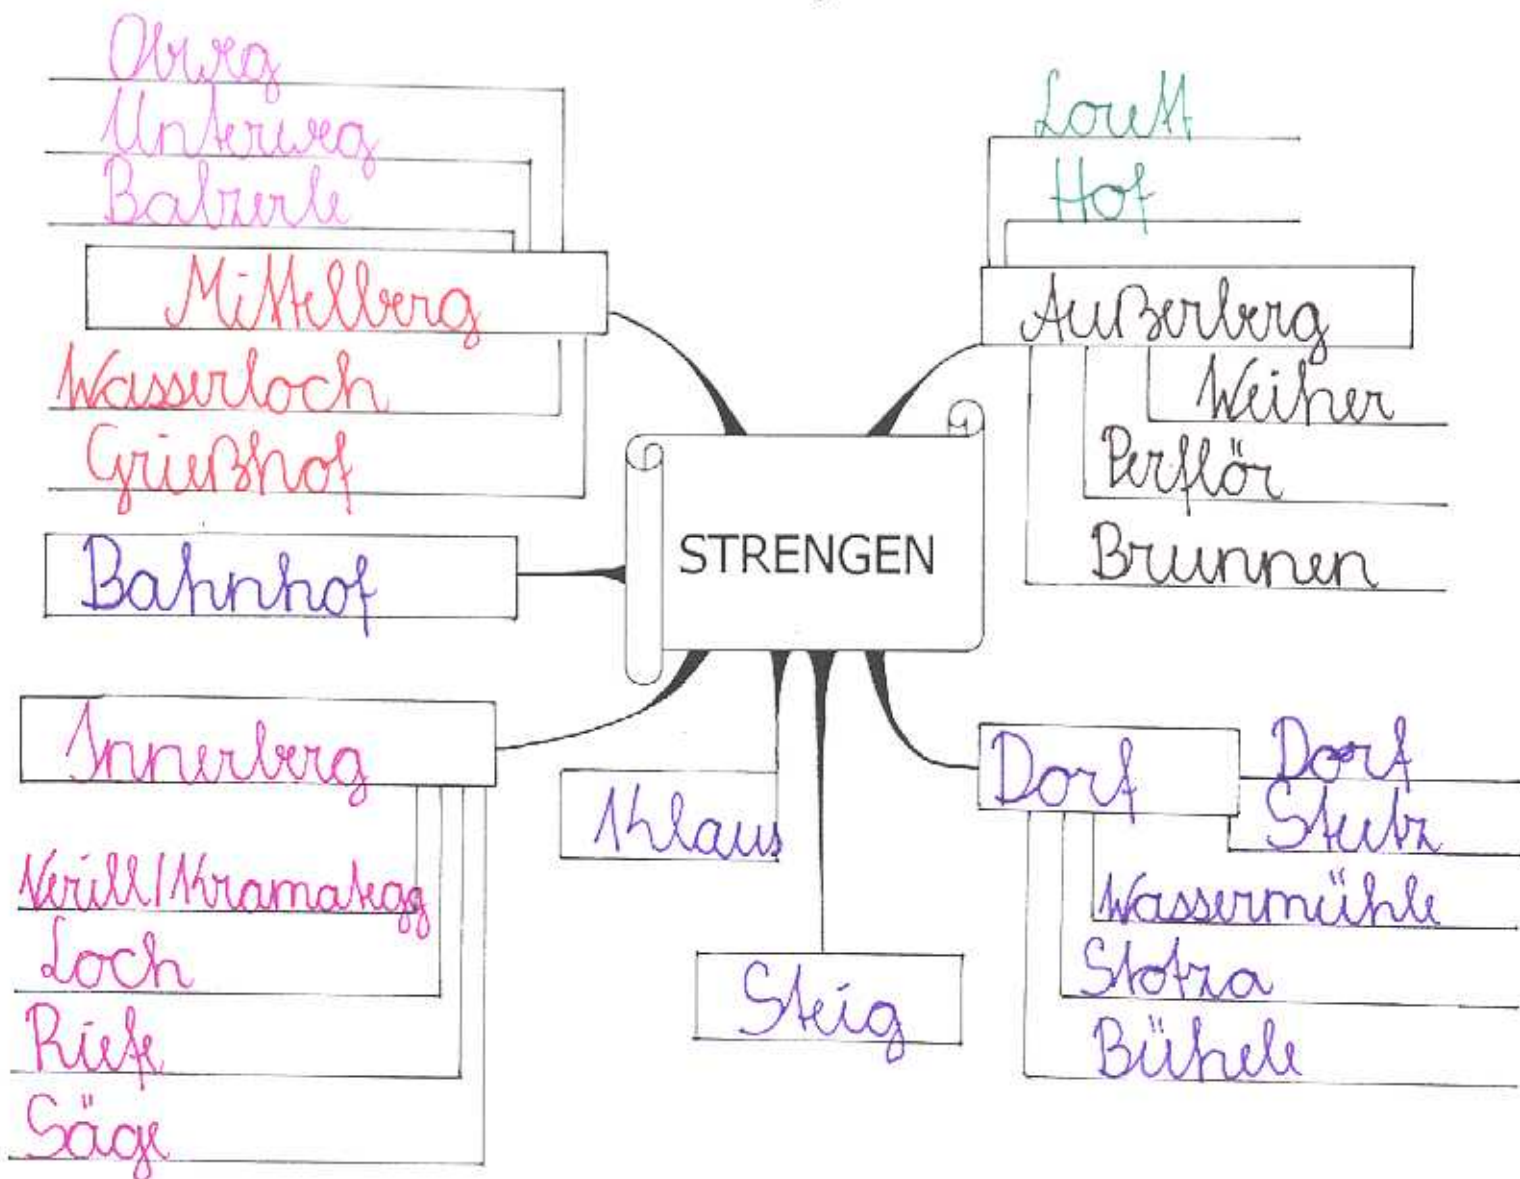 Obweg
Unterweg
Balzerle
Mittelberg
Wasserloch
Grießhof
Bahnhof
Innerberg
Verill/Kramategg
Loch
Riefe
Säge
STRENGEN
Klaus
Steig
Lorett
Hof
Außerberg
Weiher
Perflör
Brunnen
Dorf
Dorf
Stutz
Wassermühle
Stotza
Bühele